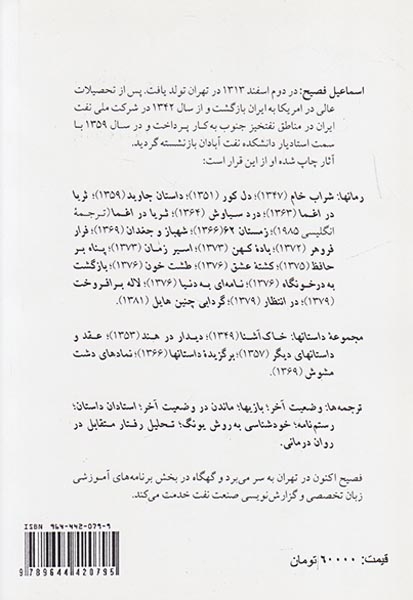 اسماعیل فصیح: در دوم اسفند ۱۳۱۳ در تهران تولد یافت. پس از تحصیلات
عالی در امریکا به ایران بازگشت و از سال ۱۳۴۲ در شرکت ملی نفت
ایران در مناطق نفتخیز جنوب به کار پرداخت و در سال ۱۳۵۹ با
سمت استادیار دانشکده نفت آبادان بازنشسته گردید.
آثار چاپ شده او از این قرار است:
رمانها: شراب خام (۱۳۴۷)؛ دل کور (۱۳۵۱)؛ داستان جاوید (۱۳۵۹)؛ ثریا
در اغما (۱۳۶۳)؛ درد سیاوش (۱۳۶۴)؛ ثریا در اغما (ترجمهٔ
انگلیسی ۱۹۸۵)؛ زمستان ۶۲ (۱۳۶۶)؛ شهباز و جغدان (۱۳۶۹)؛ فرار
فروهر (۱۳۷۲)؛ بادهٔ کهن (۱۳۷۳)؛ اسیر زمان (۱۳۷۳)؛ پناه بر
حافظ (۱۳۷۵)؛ کشتهٔ عشق (۱۳۷۶)؛ طشت خون (۱۳۷۶)؛ بازگشت
به درخونگاه (۱۳۷۶)؛ نامه‌ای به دنیا (۱۳۷۶)؛ لاله برافروخت
(۱۳۷۹)؛ در انتظار (۱۳۷۹)؛ گردابی چنین هایل (۱۳۸۱).
مجموعهٔ داستانها: خاک آشنا (۱۳۴۹)؛ دیدار در هند (۱۳۵۳)؛ عقد و
داستانهای دیگر (۱۳۵۷)؛ برگزیدهٔ داستانها (۱۳۶۶)؛ نمادهای دشت
مشوش (۱۳۶۹).
ترجمه‌ها: وضعیت آخر؛ بازیها؛ ماندن در وضعیت آخر؛ استادان داستان؛
رستم‌نامه؛ خودشناسی به روش یونگ؛ تحلیل رفتار متقابل در
روان درمانی.
فصیح اکنون در تهران به سر می‌برد و گهگاه در بخش برنامه‌های آموزشی
زبان تخصصی و گزارش‌نویسی صنعت نفت خدمت می‌کند.
ISBN 964-442-079-9
9 789644 420795
قیمت: ۶۰۰۰۰ تومان